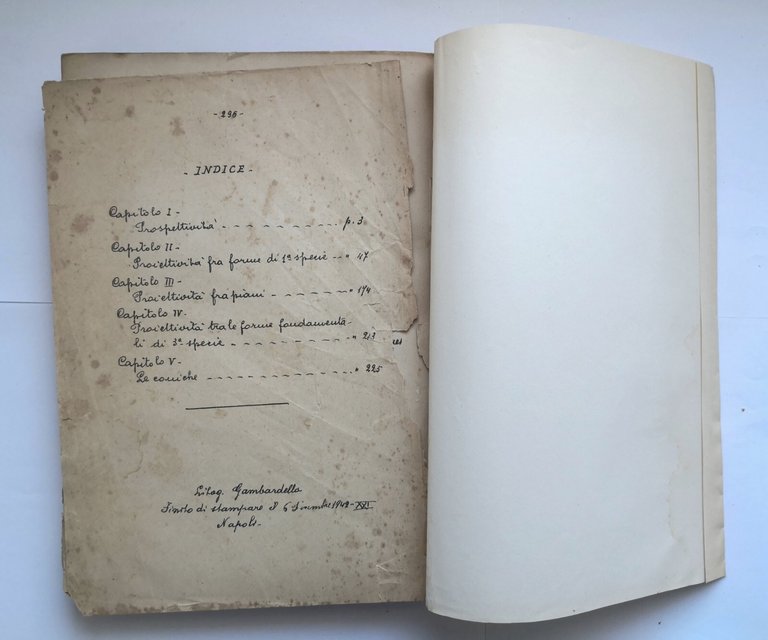 - 296 -
- INDICE -
Capitolo I -
Prospettività - - - - - - - - - - p. 3
Capitolo II -
Proiettività fra forme di 1ª specie - - " 47
Capitolo III -
Proiettività fra piani - - - - - - - " 174
Capitolo IV -
Proiettività tra le forme fondamenta-
li di 3ª specie - - - - - - - - - - " 213
Capitolo V -
Le coniche - - - - - - - - - - - - " 225
Litog. Gambardella
Finito di stampare il 6 1942 - XXI
Napoli -